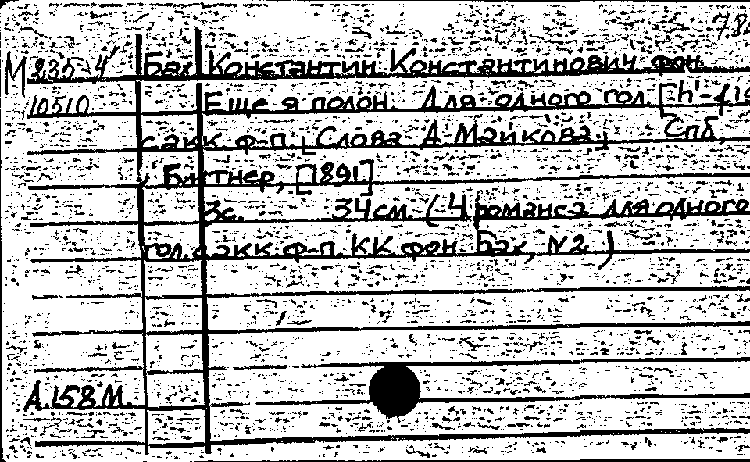 М 235-4 Бах Константин Константинович фон.
10510 Еще я полон. Для одного гол. [h'-fis
с акк. ф-п. [Слова А. Майкова.] Спб,
Битнер, [1891]
3с. 34см. (4 романса для одного
гол. с акк. ф-п. К.К. фон Бах, N2)
А.158М.